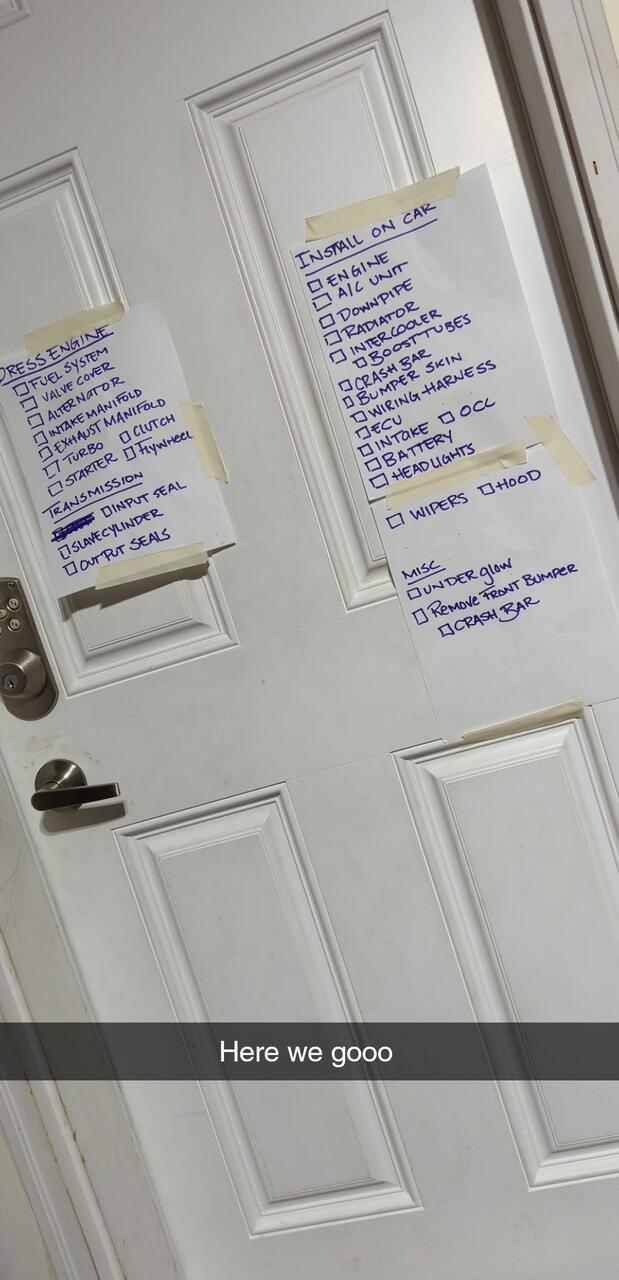 DRESS ENGINE
FUEL SYSTEM
VALVE COVER
ALTERNATOR
INTAKE MANIFOLD
EXHAUST MANIFOLD
TURBO CLUTCH
STARTER Flywheel
TRANSMISSION
INPUT SEAL
SLAVE CYLINDER
OUTPUT SEALS
INSTALL ON CAR
ENGINE
A/C UNIT
DOWNPIPE
RADIATOR
INTERCOOLER
BOOST TUBES
CRASH BAR
BUMPER SKIN
WIRING HARNESS
ECU
INTAKE OCC
BATTERY
HEADLIGHTS
WIPERS HOOD
MISC
UNDERglow
Remove FRONT BUMPER
CRASH BAR
Here we gooo